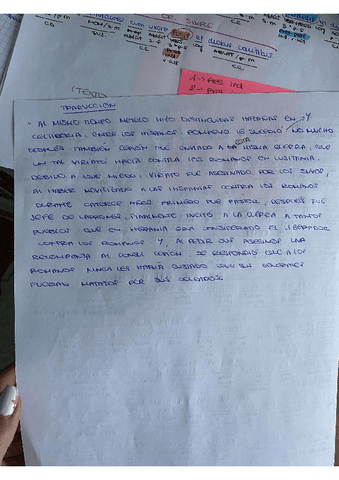 CR SIMPLE
(TEXTO)
TRADUCCIÓN
- AL MISMO TIEMPO METELO HIZO DISTINGUIDAS HAZAÑAS EN
CELTIBERIA, ENTRE LOS HISPANOS. POMPEYO LE SUCEDIÓ Y NO MUCHO
DESPUÉS TAMBIÉN CEPIÓN FUE ENVIADO A LA MISMA GUERRA, QUE
UN TAL VIRIATO HACÍA CONTRA LOS ROMANOS EN LUSITANIA.
DEBIDO A ESTE MIEDO, VIRIATO FUE ASESINADO POR LOS SUYOS,
AL HABER MOVILIZADO A LAS HISPANIAS CONTRA LOS ROMANOS
DURANTE CATORCE AÑOS. PRIMERO FUE PASTOR, DESPUÉS FUE
JEFE DE LADRONES, FINALMENTE INCITÓ A LA GUERRA A TANTOS
PUEBLOS QUE EN HISPANIA ERA CONSIDERADO EL LIBERTADOR
CONTRA LOS ROMANOS Y, AL PEDIR SUS ASESINOS UNA
RECOMPENSA AL CONSUL CEPIÓN, SE RESPONDIÓ QUE A LOS
ROMANOS NUNCA LES HABÍA GUSTADO QUE SUS GENERALES
FUERAN MATADOS POR SUS SOLDADOS.